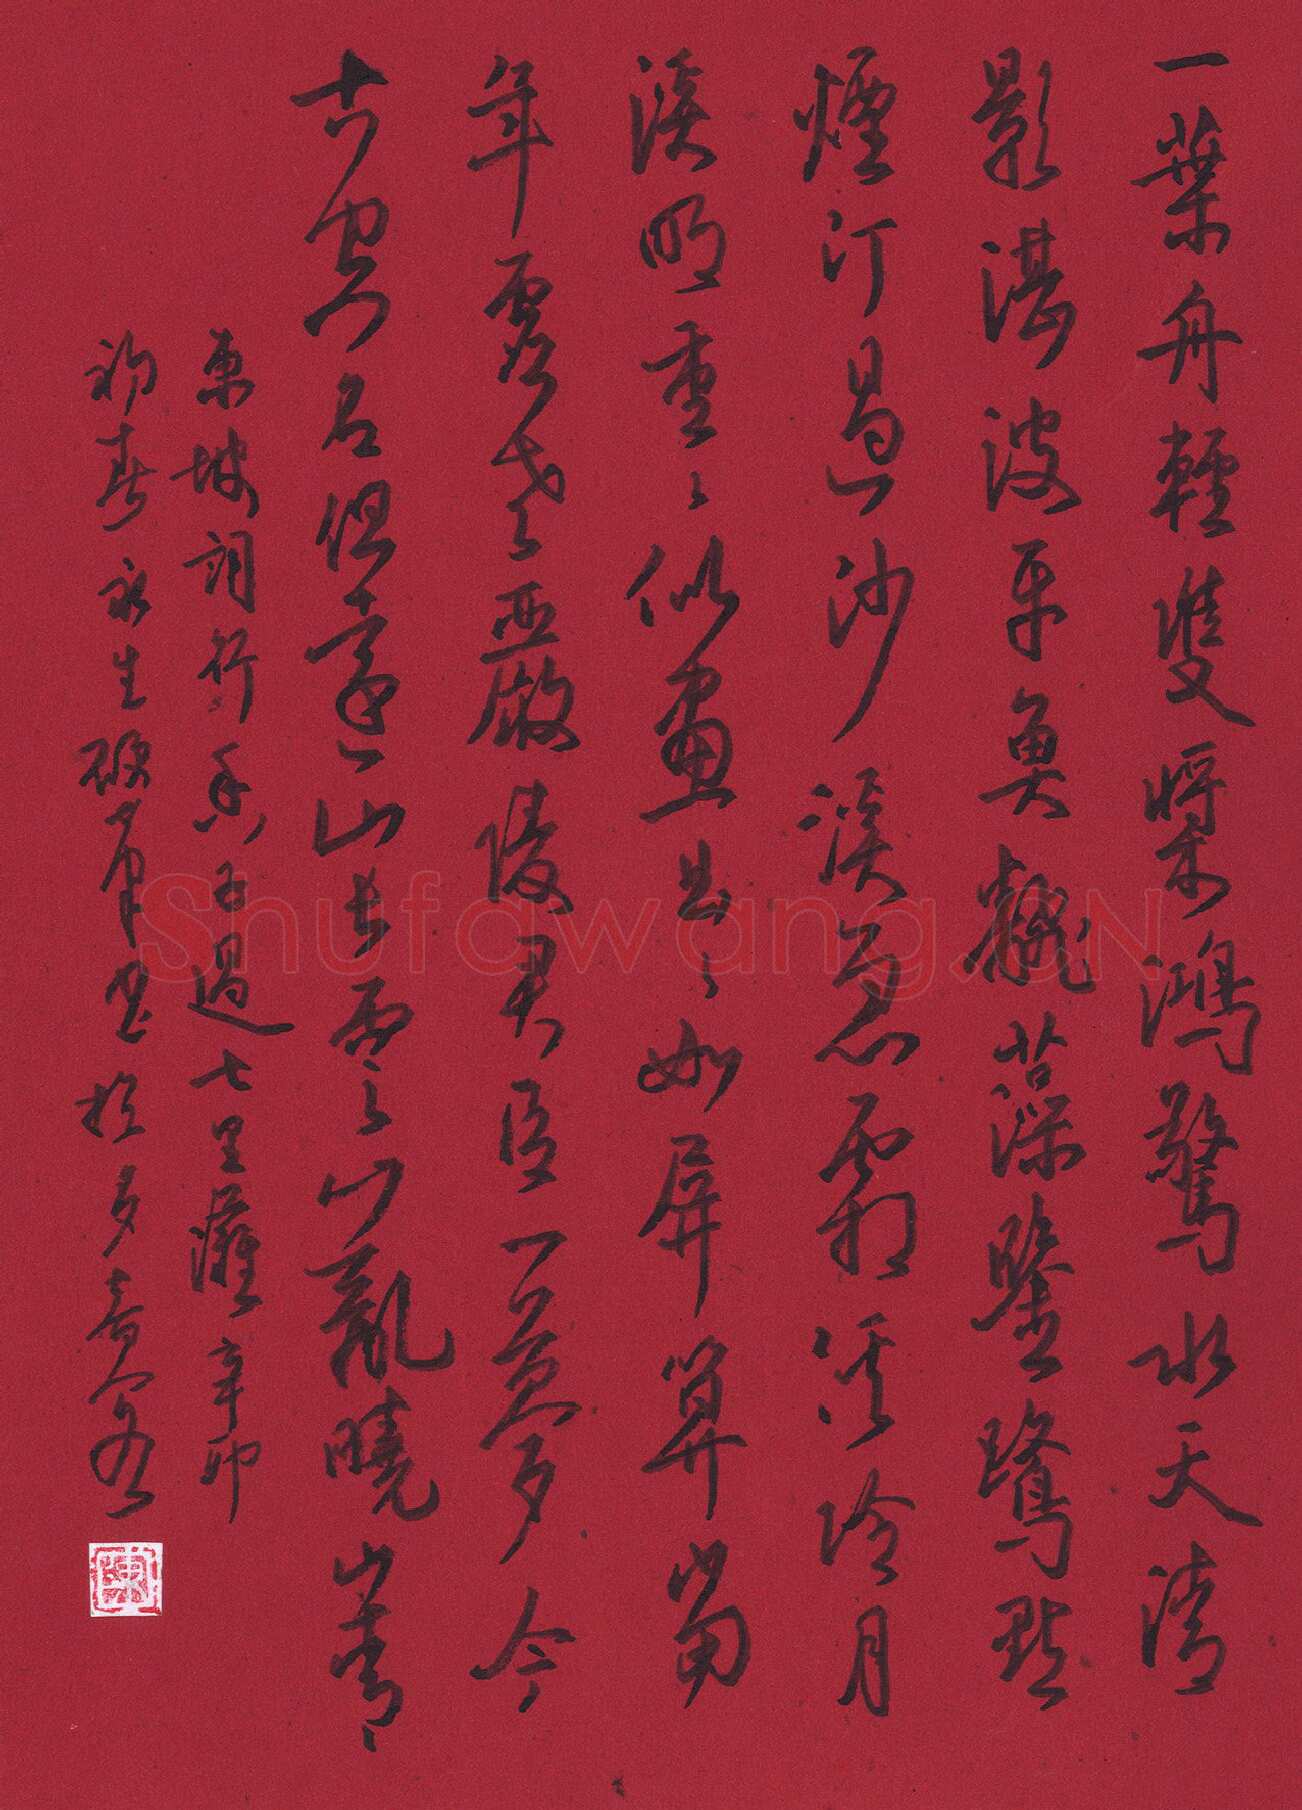 一葉舟輕雙槳鴻驚水天清
影湛波平魚翻藻鑒鷺點
煙汀過沙溪急霜溪冷月
溪明重重似畫曲曲如屏算當
年虛老嚴陵君臣一夢今
古空名但遠山長雲山亂曉山青
東坡詞行香子過七里灘辛卯
初春永生硬筆書於
陳
Shufawang.CN